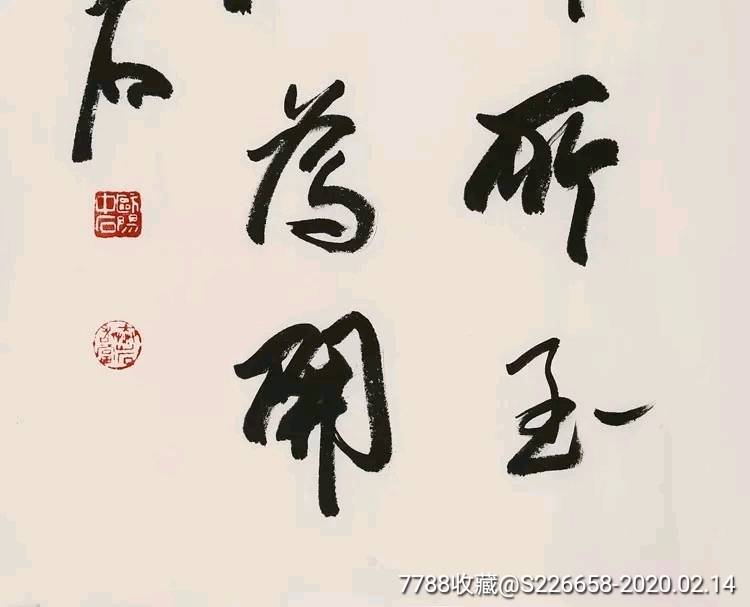 所至
為開
石
歐陽中石
7788收藏@S226658-2020.02.14